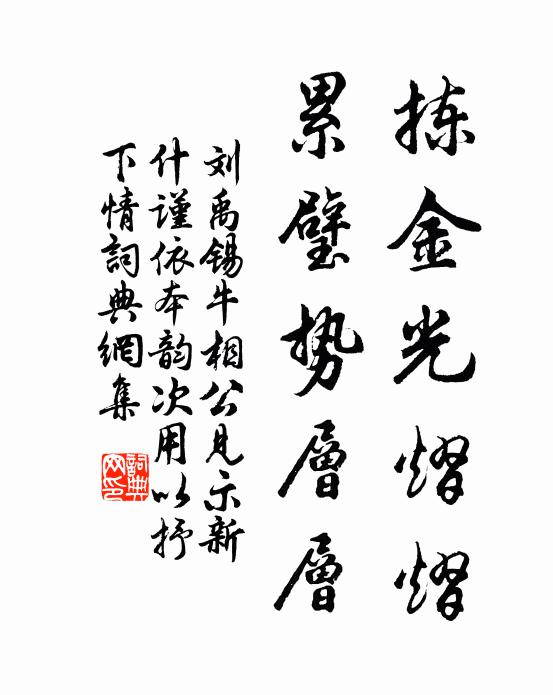 拣金光熠熠
累璧势层層
刘禹锡牛相公见示新
什谨依本韵次用以抒
下情詞典網集
詞典
网印